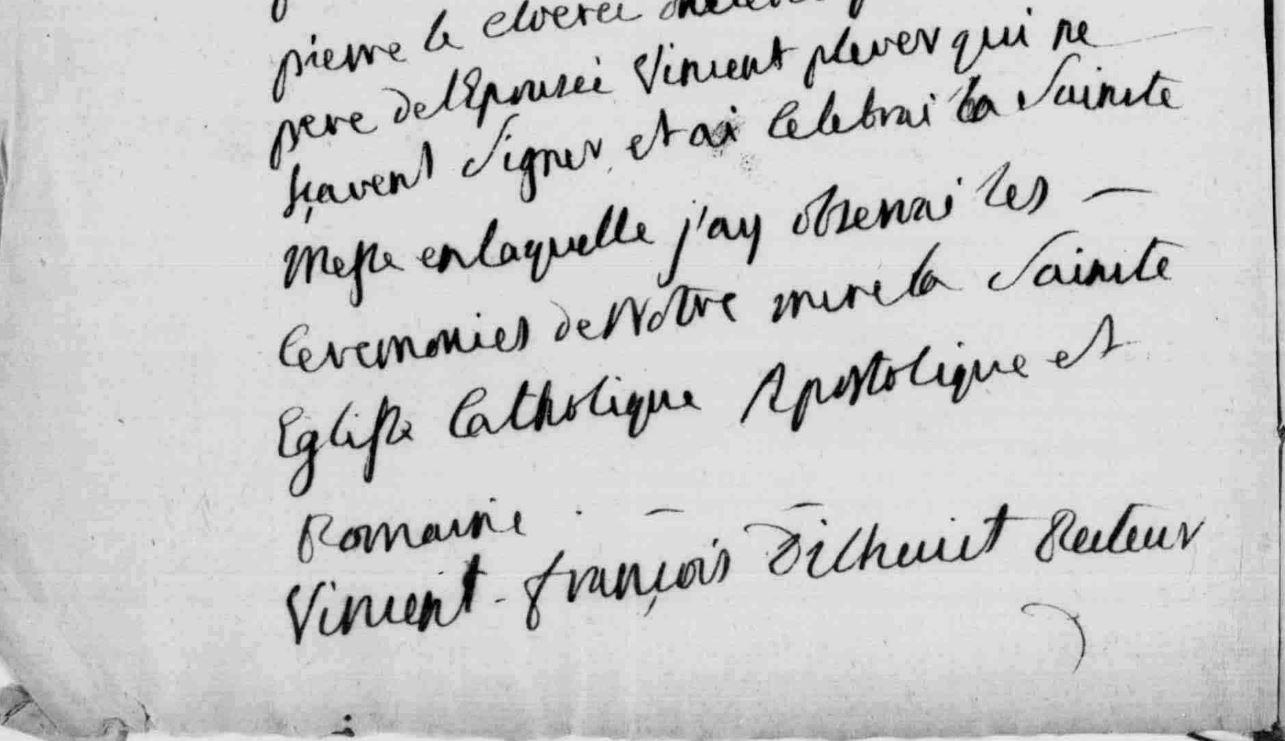 pierre le
pere de l'Epousée Vincent plever qui ne
sçavent Signer et ai Celebrai la Saincte
Messe en laquelle j'ay observai les —
Ceremonies de Notre mere la Saincte
Eglisse Catholique Apostolique et
Romaine . — —
Vincent - françois Dilhuiet Recteur